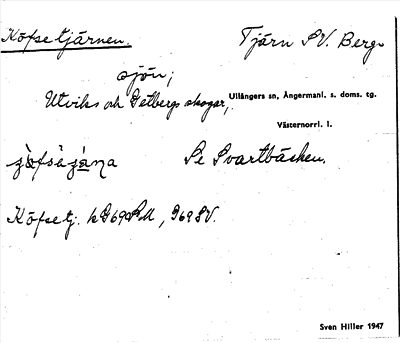 Köfsetjärnen. Tjärn SV. Berg.
sjön;
Utviks och Getbergs skogar, Ullångers sn, Ångermanl. s. doms. tg.
Västernorrl. l.
Se Svartbäcken.
Köfsetj.
Sven Hiller 1947